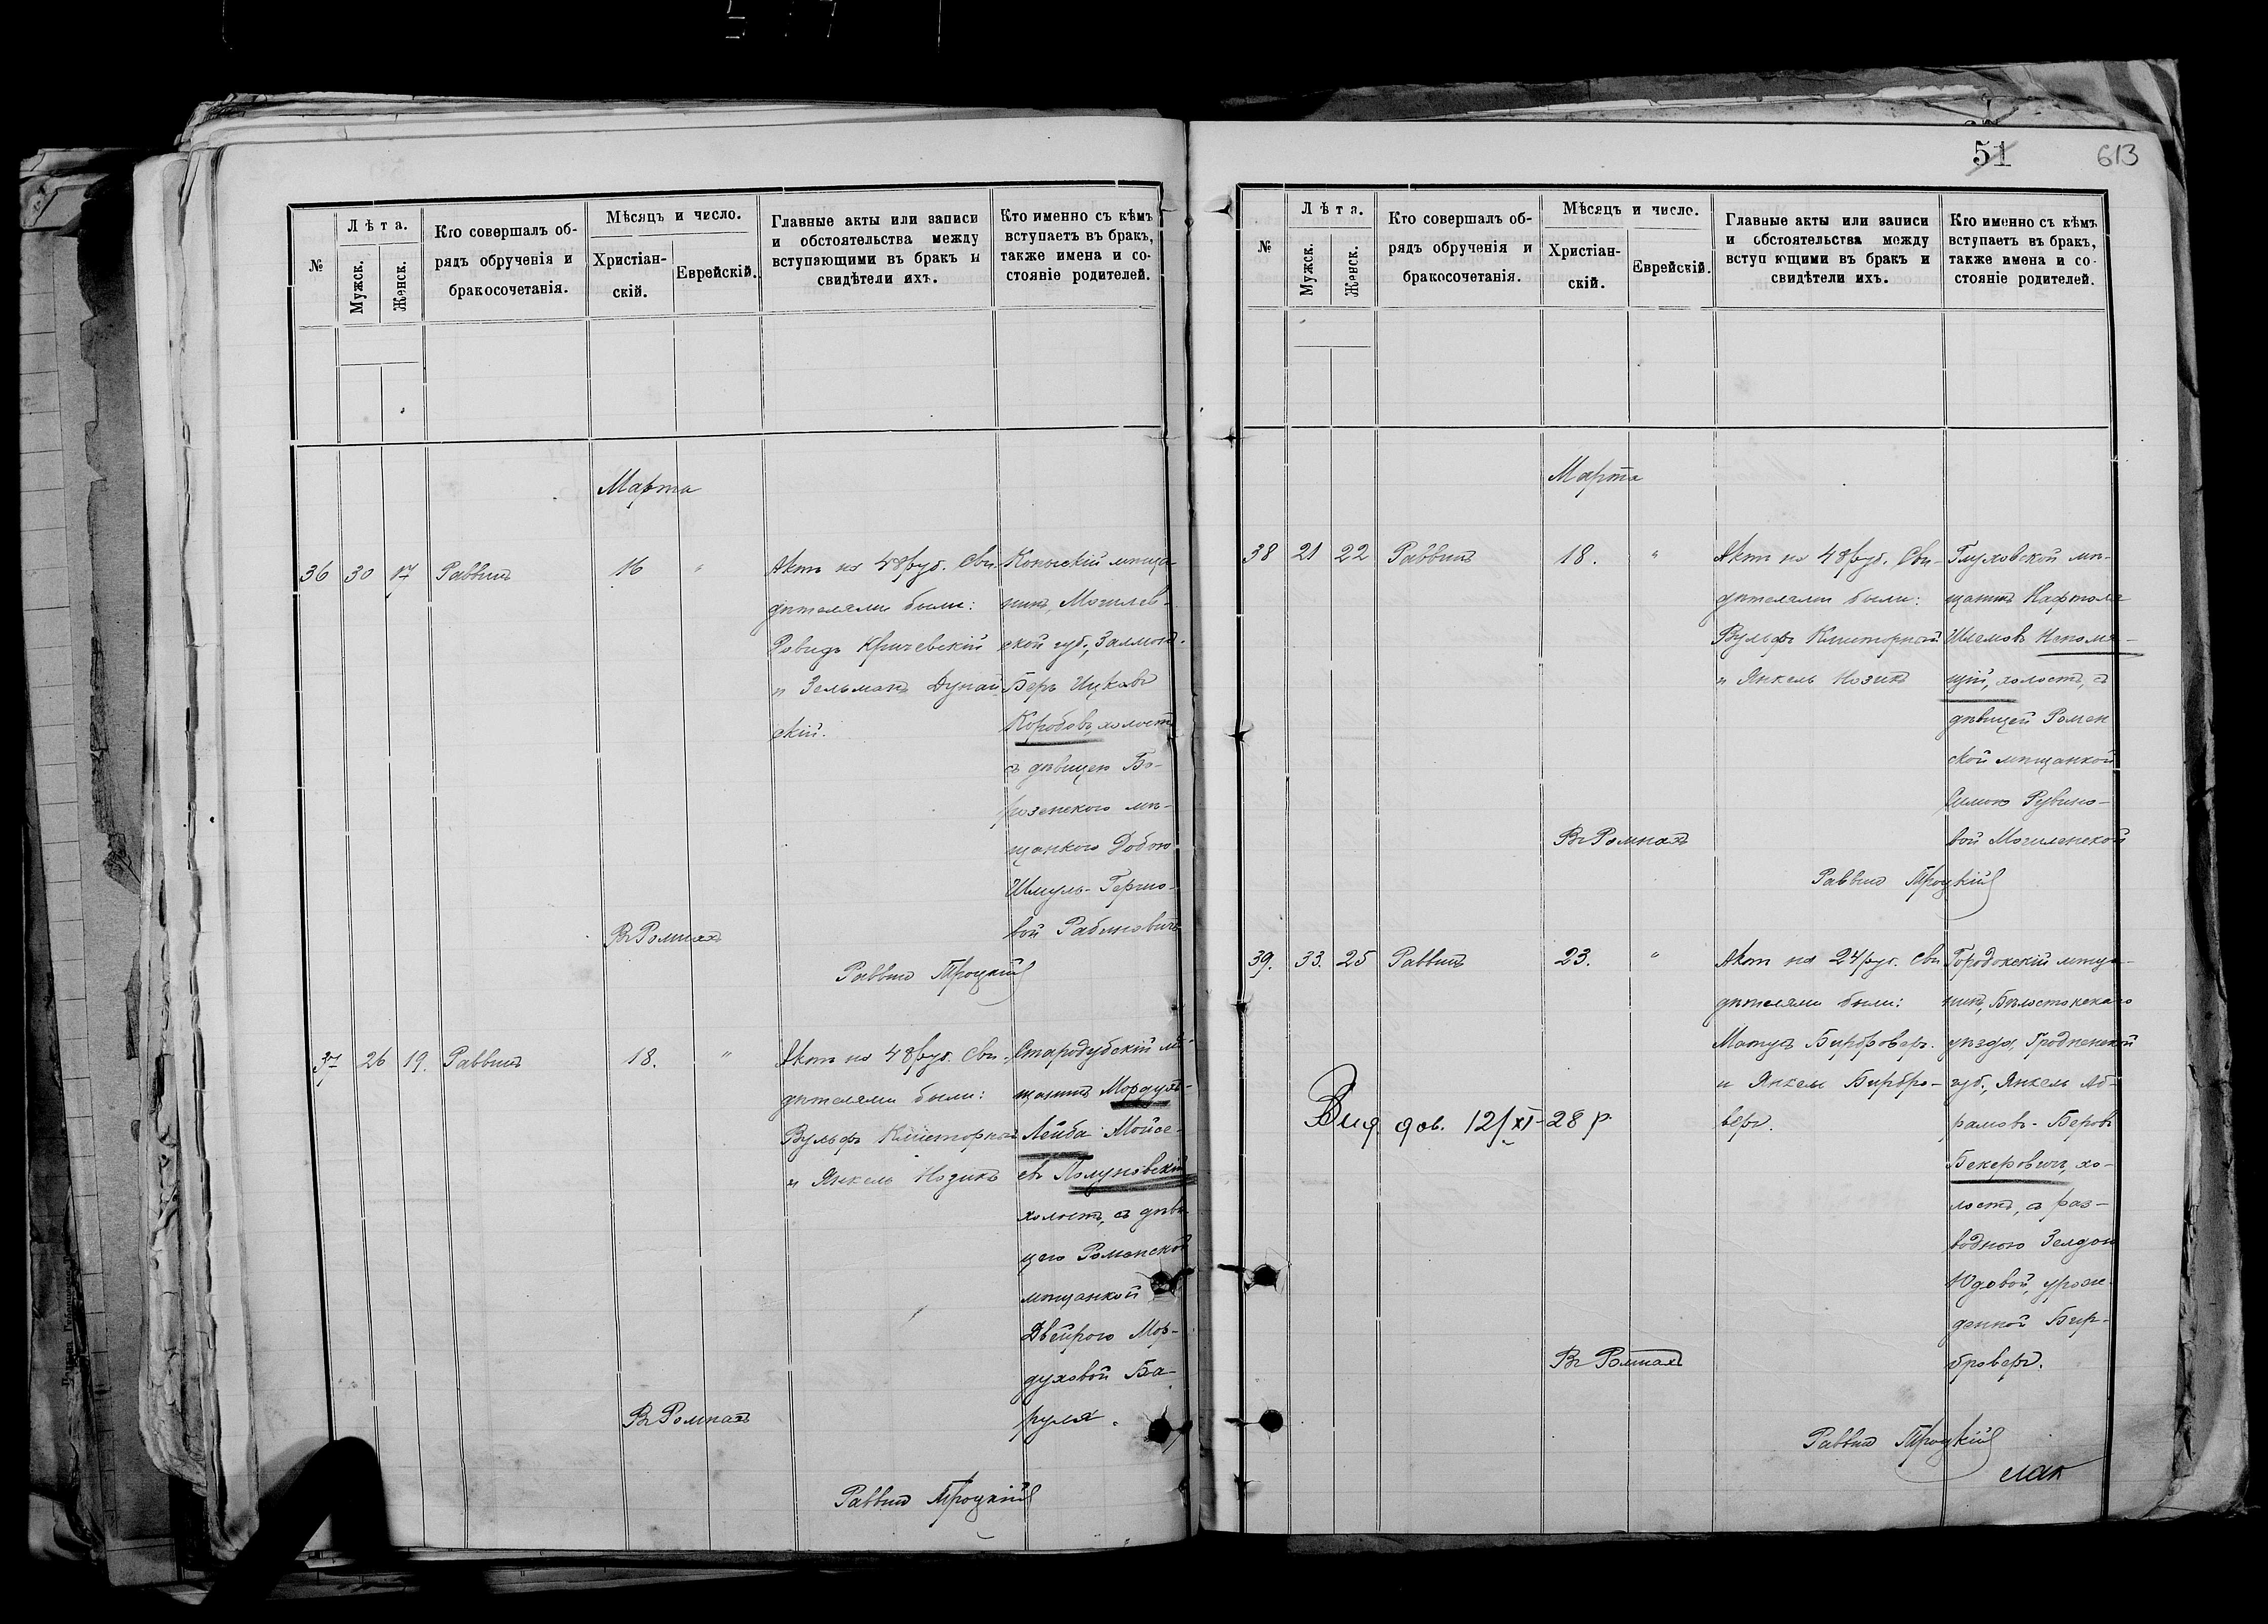 №
Лѣта.
Мужск.
Женск.
Кто совершалъ об-
рядъ обрученія и
бракосочетанія.
Мѣсяцъ и число.
Христіан-
скій.
Еврейскій.
Главные акты или записи
и обстоятельства между
вступяющими въ бракъ и
свидѣтели ихъ.
Кто именно съ кѣмъ
вступаетъ въ бракъ,
также имена и со-
стояніе родителей.
Марта
36 30 17 Раввинъ 16 "
Актъ на 48 руб. Сви-
дѣтелями были:
Давидъ Кричевскій
и Зельманъ Дунай
скій.
Копыскій мѣща-
нинъ Могилев-
ской губ., Залмонъ-
Беръ Ицковъ
Коробовъ, холостъ
съ дѣвицею Бо-
рзенскою мѣ-
щанкою Добою
Шмуль-Герцо-
вой Рабиновичъ
Въ Ромнахъ
Раввинъ Троцкій
37 26 19. Раввинъ 18. "
Актъ на 48 руб. Сви-
дѣтелями были:
Вульфъ Клисторной
и Янкель Нозикъ
Стародубскій мѣ-
щанинъ Мордухъ-
Лейба Мойсе-
евъ Полуновскій
холостъ, съ дѣви-
цею Роменской
мѣщанкой
Двейрою Мор-
духовой Ба-
руля.
Въ Ромнахъ
Раввинъ Троцкій
51
613
№
Лѣта.
Мужск.
Женск.
Кто совершалъ об-
рядъ обрученія и
бракосочетанія.
Мѣсяцъ и число.
Христіан-
скій.
Еврейскій.
Главные акты или записи
и обстоятельства между
вступ ющими въ бракъ и
свидѣтели ихъ.
Кто именно съ кѣмъ
вступаетъ въ бракъ,
также имена и со-
стояніе родителей.
Марта
38 21 22 Раввинъ 18. "
Актъ на 48 руб. Сви-
дѣтелями были:
Вульфъ Клисторной
и Янкель Нозикъ
Глуховской мѣ-
щанинъ Нафтоле
Шлемовъ Непомня-
щій, холостъ, съ
дѣвицей Ромен
ской мѣщанкой
Рувино-
вой Могиленской
Въ Ромнахъ
Раввинъ Троцкій
39. 33. 25 Раввинъ 23. "
Актъ на 24 руб. Сви
дѣтелями были:
Матусъ Бирброверъ
и Янкель Бирбро-
веръ.
Городокскій мѣща-
нинъ, Бѣлостокскаго
уѣзда, Гродненской
губ., Янкель Аб-
рамовъ-Беровъ
Бекеровичъ, хо-
лостъ, съ раз-
водною Зелдою
Юдовой, урож-
денной Бир-
броверъ.
Вид. дов. 12/XI-28 р
Въ Ромнахъ
Раввинъ Троцкій